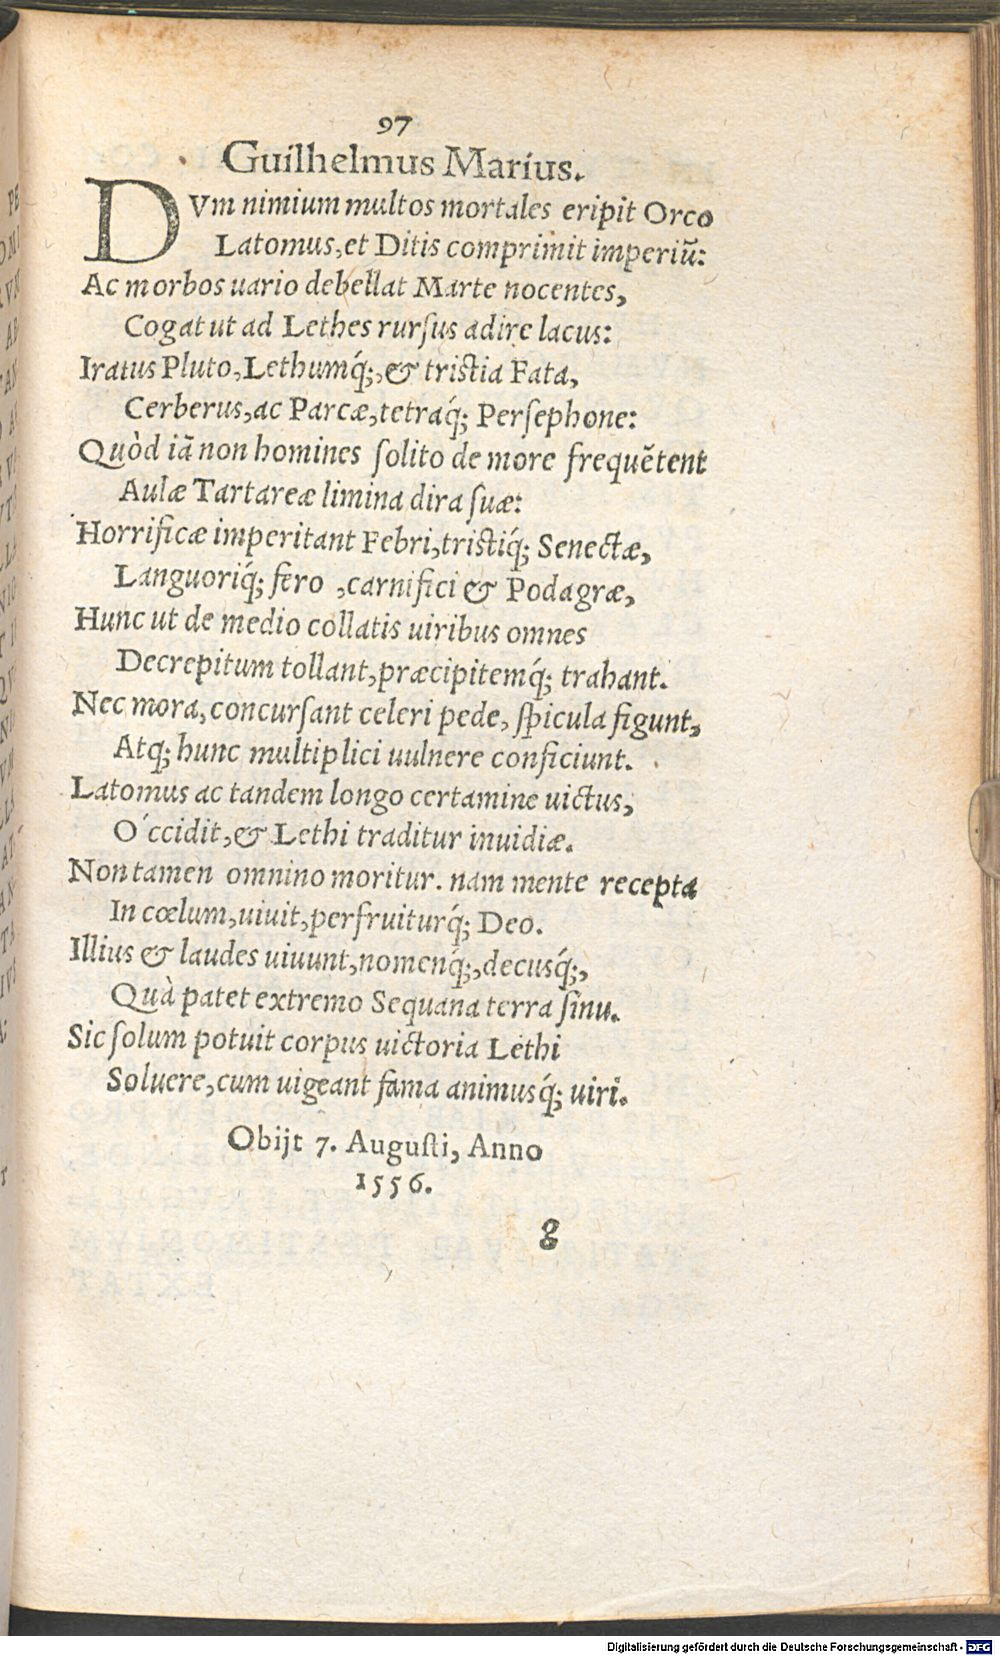 97
Guilhelmus Marius.
DVm nimium multos mortales eripit Orco
Latomus, et Ditis comprimit imperiũ:
Ac morbos uario debellat Marte nocentes,
Cogat ut ad Lethes rursus adire lacus:
Iratus Pluto, Lethumq́;, & tristia Fata,
Cerberus, ac Parcæ, tetraq́; Persephone:
Quòd iã non homines solito de more frequẽtent
Aulæ Tartareæ limina dira suæ:
Horrificæ imperitant Febri, tristiq́; Senectæ,
Languoriq́; fero, carnifici & Podagræ,
Hunc ut de medio collatis uiribus omnes
Decrepitum tollant, præcipitemq́; trahant.
Nec mora, concursant celeri pede, spicula figunt,
Atq; hunc multiplici uulnere conficiunt.
Latomus ac tandem longo certamine uictus,
O´ccidit, & Lethi traditur inuidiæ.
Non tamen omnino moritur. nam mente recepta
In cœlum, uiuit, perfruiturq́; Deo.
Illius & laudes uiuunt, nomenq́;, decusq́;,
Quà patet extremo Sequana terra sinu.
Sic solum potuit corpus uictoria Lethi
Soluere, cum uigeant fama animusq́; uiri.
Obijt 7. Augusti, Anno
1556.
g
Digitalisierung gefördert durch die Deutsche Forschungsgemeinschaft - DFG